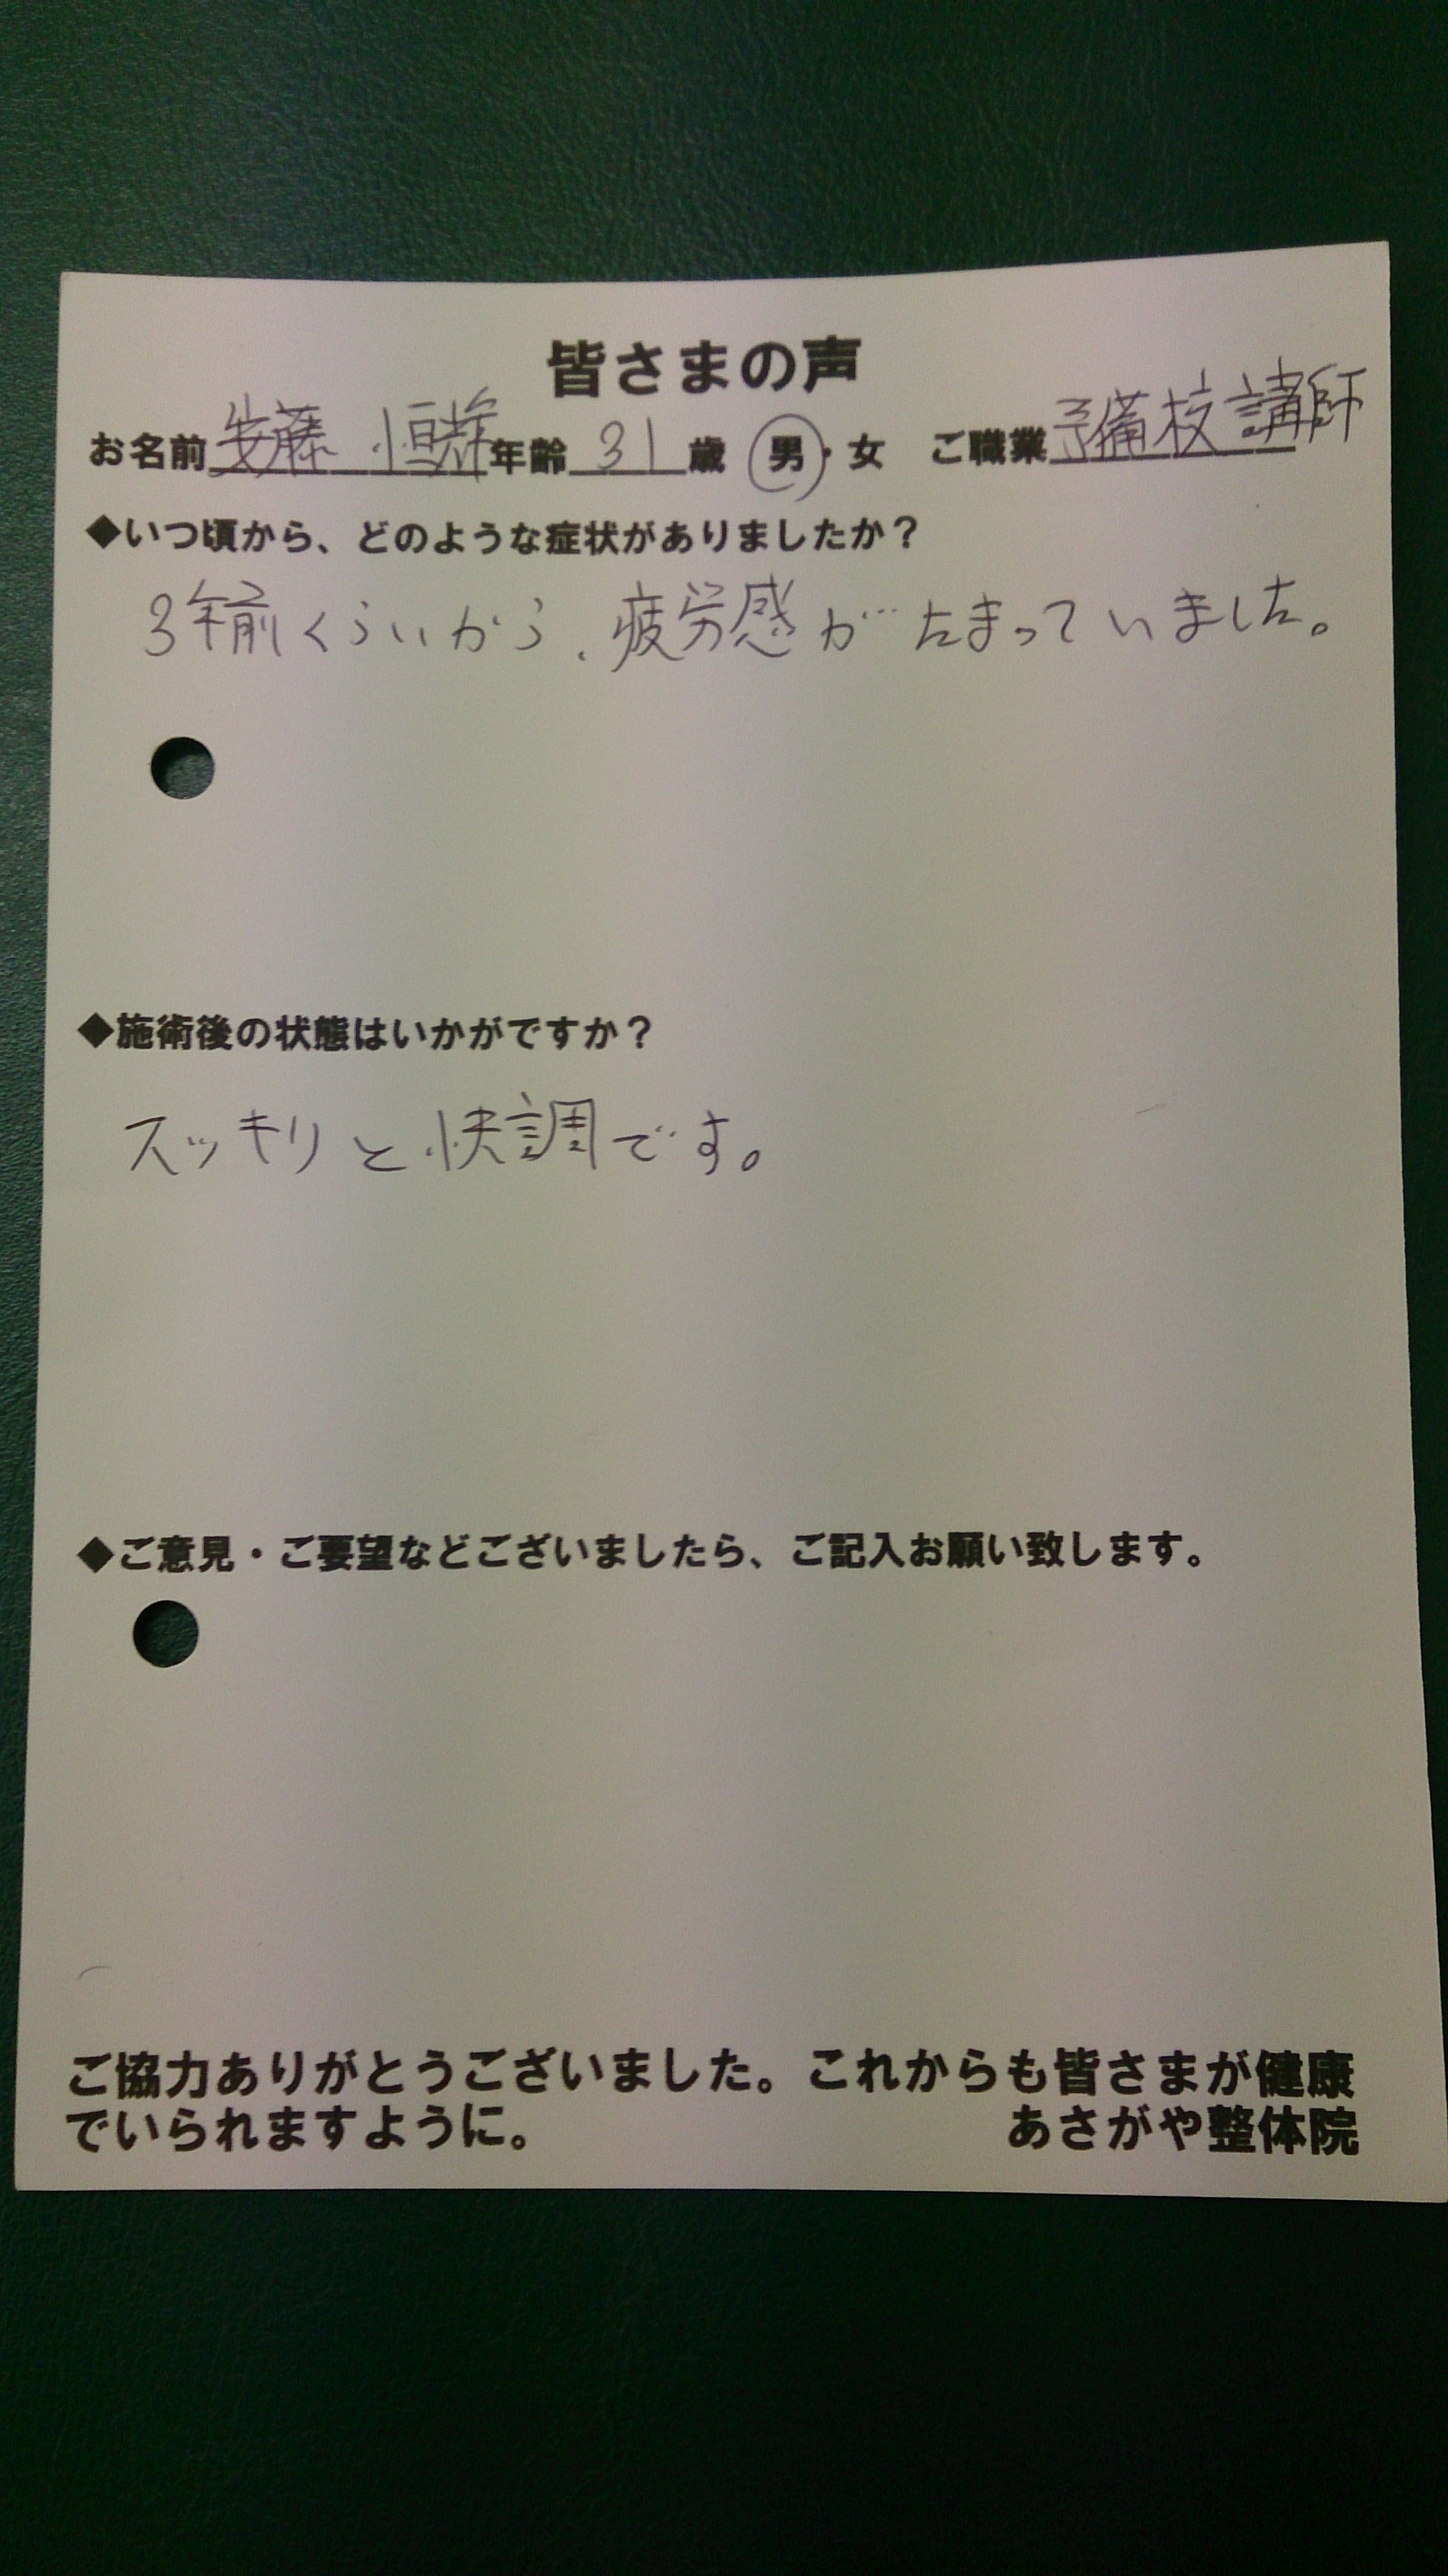 皆さまの声
お名前 安藤 恒 年齢 31 歳 男・女 ご職業 予備校講師
◆いつ頃から、どのような症状がありましたか？
3年前くらいから、疲労感がたまっていました。
◆施術後の状態はいかがですか？
スッキリと快調です。
◆ご意見・ご要望などございましたら、ご記入お願い致します。
ご協力ありがとうございました。これからも皆さまが健康
でいられますように。 あさがや整体院